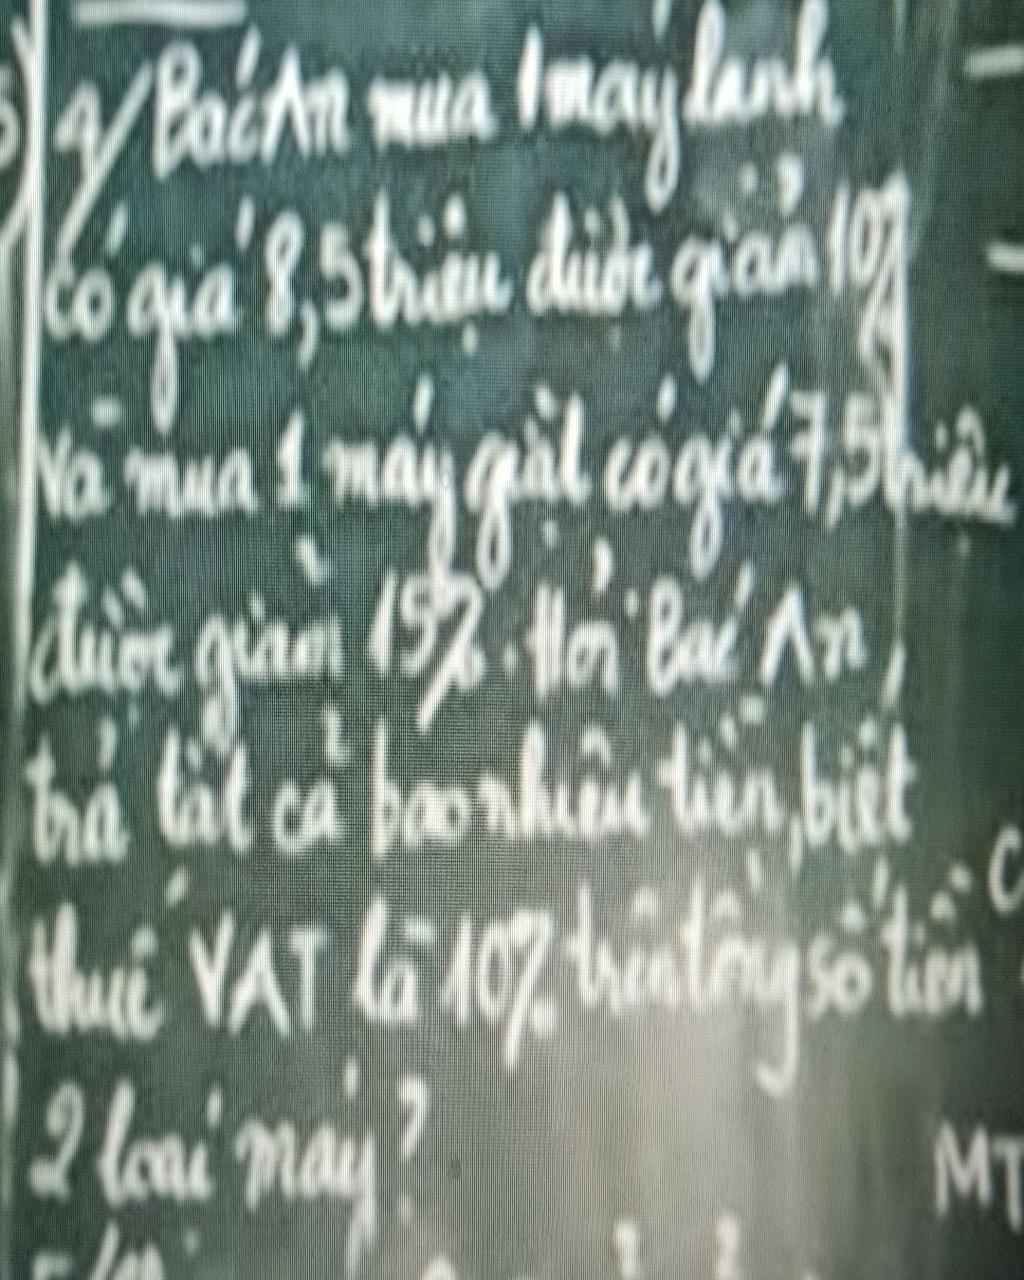 4/ Bác An mua 1 máy lạnh
có giá 8,5 triệu được giảm 10%
và mua 1 máy giặt có giá 7,5 triệu
được giảm 15%. Hỏi Bác An
trả tất cả bao nhiêu tiền, biết
thuế VAT là 10% trên tổng số tiền
2 loại máy?
MT